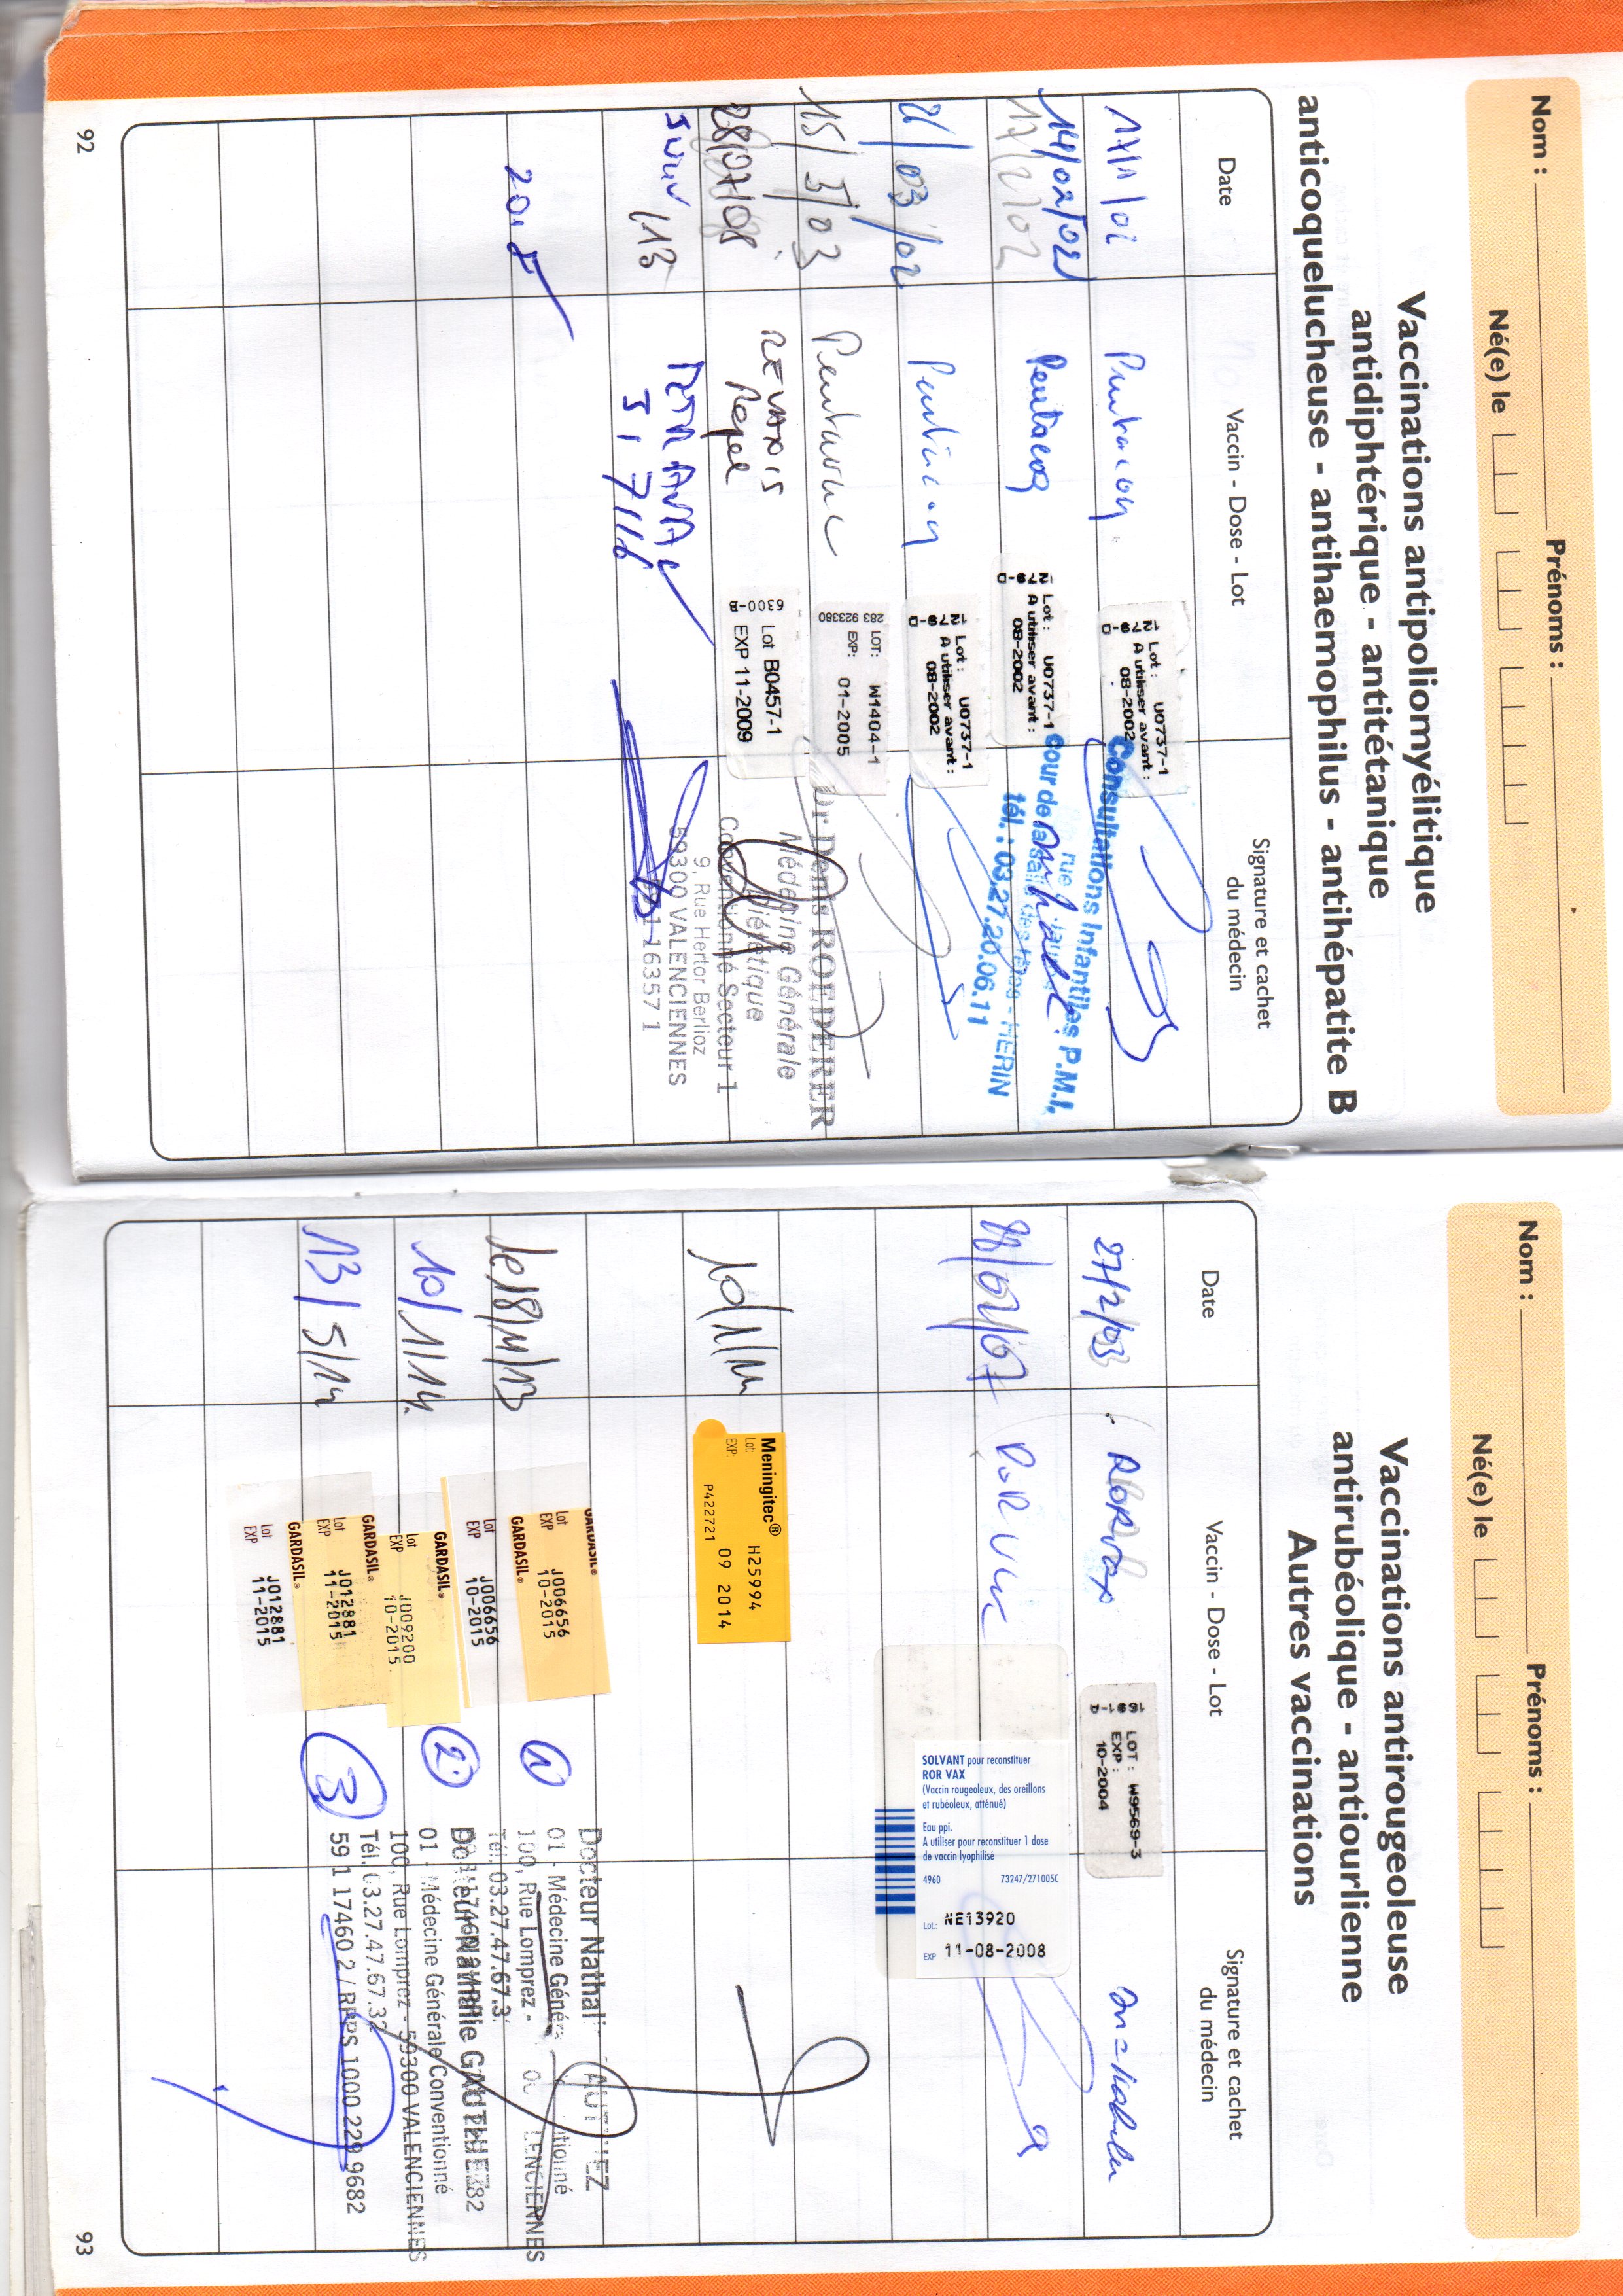 Nom : Prénoms :
Né(e) le
Vaccinations antipoliomyélitique
antidiphtérique - antitétanique
anticoquelucheuse - antihaemophilus - antihépatite B
Date
Vaccin - Dose - Lot
Signature et cachet
du médecin
Lot : U0737-1
A utiliser avant :
08-2002
1279-D
Consultations Infantiles P.M.I.
14/02/02
17/2/02
Pentacoq
Lot : U0737-1
A utiliser avant :
08-2002
1279-D
Cour de la salle des fêtes - HERIN
tél. : 03.27.20.06.11
21/03/02
Lot : U0737-1
A utiliser avant :
08-2002
1279-D
15/3/03
Pentavac
LOT: W1404-1
EXP: 01-2005
283 923380
Dr Denis ROEDERER
Médecine Générale
Diététique
Conventionné Secteur 1
9, Rue Hector Berlioz
59300 VALENCIENNES
59 1 16357 1
28/07/08
REVAXIS
Rappel
Lot B0457-1
EXP 11-2009
6300-B
Juin 13
92
Nom : Prénoms :
Né(e) le
Vaccinations antirougeoleuse
antirubéolique - antiourlienne
Autres vaccinations
Date
Vaccin - Dose - Lot
Signature et cachet
du médecin
27/2/03
RORVax
LOT : W9569-3
EXP :
10-2004
1691-D
SOLVANT pour reconstituer
ROR VAX
(Vaccin rougeoleux, des oreillons
et rubéoleux, atténué)
Eau ppi.
A utiliser pour reconstituer 1 dose
de vaccin lyophilisé
4960 73247/271005C
Lot: NE13920
EXP 11-08-2008
Meningitec®
Lot: H25994
EXP: 09 2014
P422721
GARDASIL®
Lot J006656
EXP 10-2015
GARDASIL®
Lot J006656
EXP 10-2015
1
Docteur Nathalie GAUTHIEZ
01 - Médecine Générale Conventionné
100, Rue Lomprez - 59300 VALENCIENNES
Tél. 03.27.47.67.32
10/1/14
GARDASIL®
Lot J009200
EXP 10-2015
2
Docteur Nathalie GAUTHIEZ
01 - Médecine Générale Conventionné
100, Rue Lomprez - 59300 VALENCIENNES
Tél. 03.27.47.67.32
59 1 17460 2 / RPPS 1000 229 9682
13/5/14
GARDASIL®
Lot J012881
EXP 11-2015
GARDASIL®
Lot J012881
EXP 11-2015
3
93